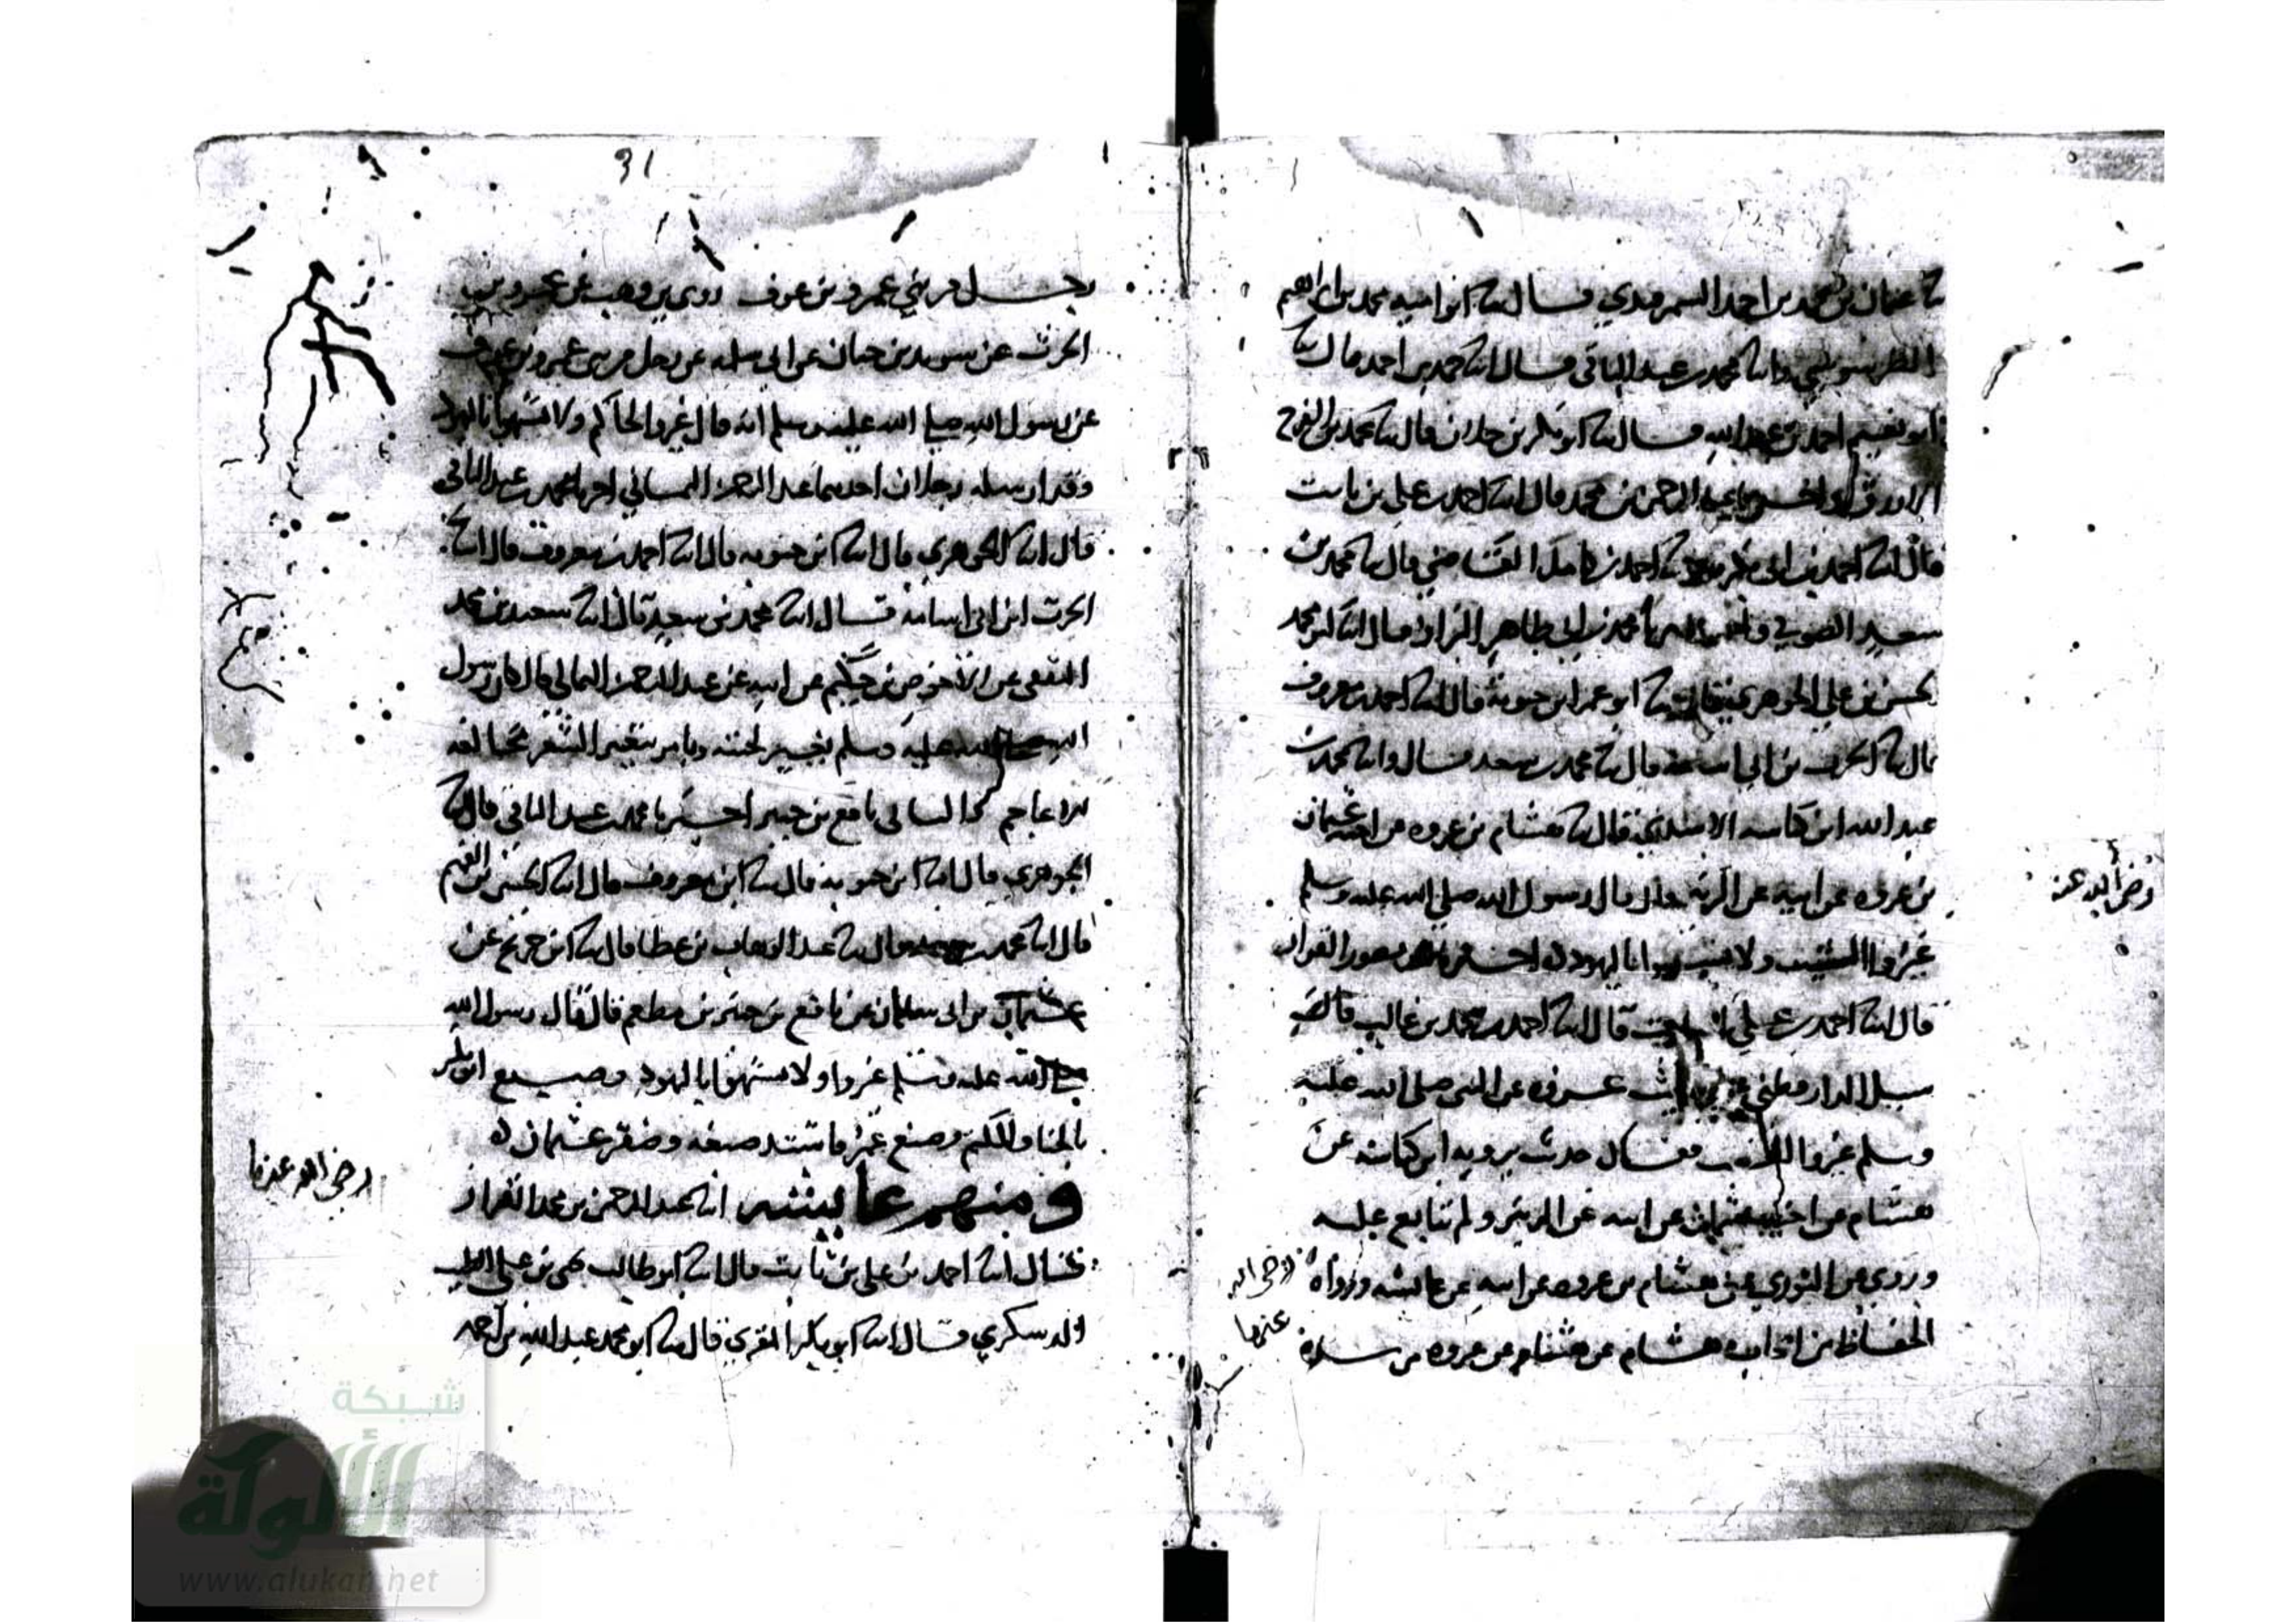 عثمان بن محمد بن احمد السمرقندي قال ثنا ابو اميه محمد بن ابراهيم
الطرسوسي وانا محمد بن عبد الباقي قال انا حمد بن احمد قال ثنا
ابو نعيم احمد بن عبد الله قال ثنا ابو بكر بن خلاد قال ثنا محمد بن الفرج
الازرق عبد الرحمن بن محمد قال انا احمد بن علي بن ثابت
قال انا احمد بن ابي احمد بن كامل القاضي قال ثنا محمد بن
سعيد الصوفي محمد بن ابي طاهر البزاز قال انا ابو محمد
الحسن بن علي الجوهري قال ابو عمر ابن حيويه قال انا احمد بن معروف
قال ثنا الحرث بن ابي اسامة قال ثنا محمد بن سعد قال وانا محمد بن
عبد الله ابن كناسه الاسدي قال ثنا هشام بن عروه عن اخيه عثمان
بن عروه عن ابيه عن الزبير قال قال رسول الله صلى الله عليه وسلم
رضي الله عنه
غيروا الشيب ولا تشبهوا باليهود ه القزاز
قال انا احمد بن علي قال انا احمد بن محمد بن غالب قال
سيل الدارقطني عن حديث عروه عن النبي صلى الله عليه
وسلم غيروا الشيب فقال حدث يرويه ابن كناسه عن
هشام عن اخيه عثمان عن ابيه عن الزبير ولم يتابع عليه
وروي عن الثوري عن هشام بن عروه عن ابيه عن عايشه ورواه
رضي الله عنها
الحفاظ من اصحاب هشام عن هشام عن عروه مرسلا
31
رجل من بني عمرو بن عوف روى بن وهب عن عمرو بن
الحرث عن سويد بن حيان عن ابي سلمه عن رجل من بني عمرو بن عوف
عن رسول الله صلى الله عليه وسلم انه قال غيروا لحاكم ولا تشبهوا باليهود
رجلان احدهما عبد الرحمن الثمالي اخبرنا محمد بن عبد الباقي
قال انا الجوهري قال انا ابن حيويه قال انا احمد بن معروف قال انا
الحرث ابن ابي اسامة قال انا محمد بن سعد قال انا سعيد بن محمد
الثقفي عن الاحوص بن حكيم عن ابيه عن عبد الرحمن الثمالي قال كان رسول
الله صلى الله عليه وسلم يغير لحيته ويامر بتغيير الشعر مخالفه
للاعاجم نافع بن جبير اخبرنا محمد بن عبد الباقي قال انا
الجوهري قال انا ابن حيويه قال ثنا ابن معروف قال انا الحسين بن الفهم
قال انا محمد بن سعد قال ثنا عبد الوهاب بن عطا قال ثنا ابن جريج عن
عثمان بن ابي سليمان عن نافع بن جبير بن مطعم قال قال رسول الله
صلى الله عليه وسلم غيروا ولا تشبهوا باليهود وصبغ ابو بكر
بالحنا والكتم وصبغ عمر فاشتد صبغه وصفر عثمان ه
رضي الله عنهما
ومنهم عايشه انا عبد الرحمن بن محمد القزاز
قال انا احمد بن علي بن ثابت قال انا ابو طالب يحيى بن علي الطيب
الدسكري قال انا ابو بكر المقري قال ثنا ابو محمد عبد الله بن احمد
شبكة
الألوكة
www.alukah.net